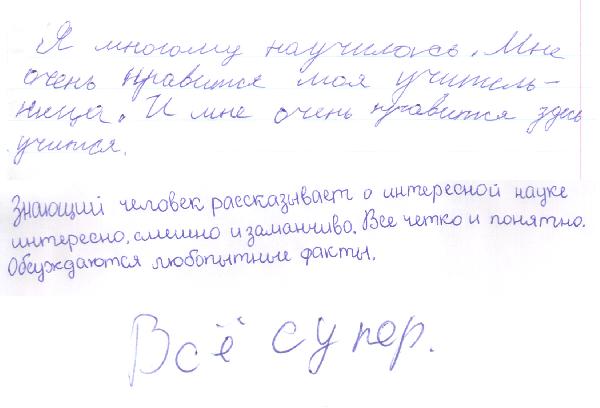 Я многому научилась. Мне
очень нравится моя учитель-
ница. И мне очень нравится здесь
учится.
Знающий человек рассказывает о интересной науке
интересно, смешно и заманчиво. Все четко и понятно.
Обсуждаются любопытные факты.
Всё супер.